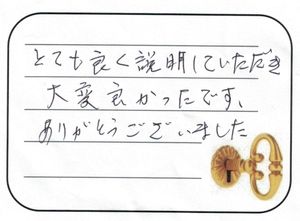 とても良く説明していただき
大変良かったです、
ありがとうございました